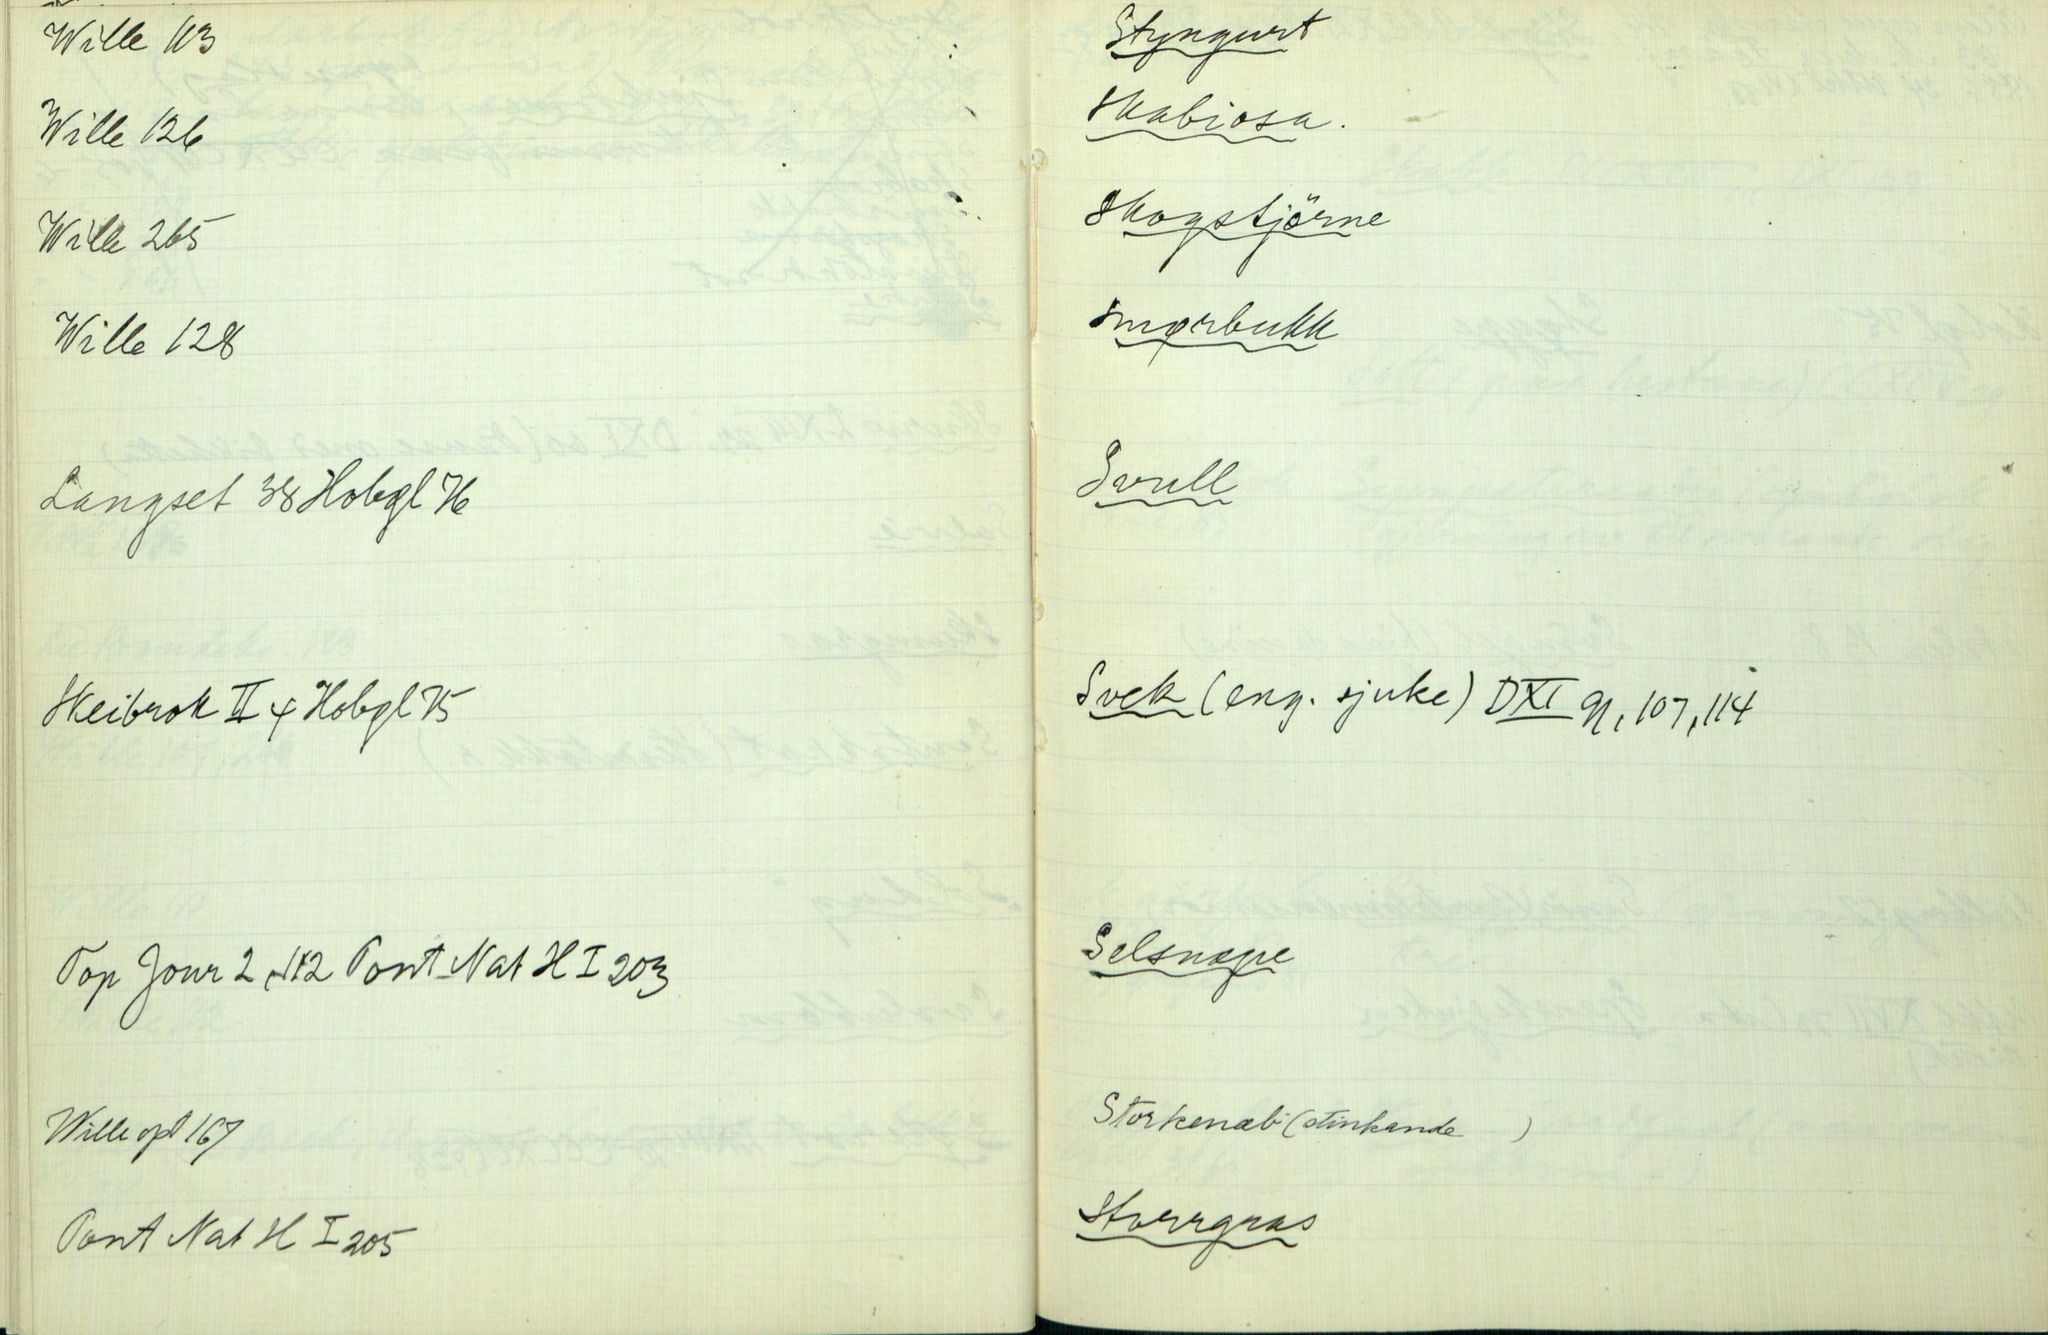 Wille 113
Wille 126
Wille 265
Wille 128
Langset 38 Hobgl 76
Skeibrok II 4 Hobgl 75
Top Jour 2, 112 Pont Nat H I 203
Wille opt 167
Pont Nat H I 205
Styngurt
Skabiosa.
Skogstjörne
Smørbukk
Svull
Svek (eng. sjuke) DXI 91, 107, 114
Selsnæpe
Storkenæb (stinkande )
Storrgras